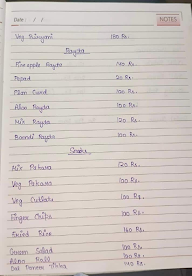 Date: / /
NOTES
Veg Biryani 180 Rs.
Rayta
Pineapple Rayta 140 Rs.
Papad 20 Rs.
Plan Curd 100 Rs.
Aloo Rayta 100 Rs.
Mix Rayta 120 Rs.
Boondi Rayta 100 Rs.
Snaks
Mix Pakora 120 Rs.
Veg Pakora 100 Rs.
Veg Cutlas 100 Rs.
Finger Chips 100 Rs.
Fried Rice 160 Rs.
Green Salad 100 Rs.
100 Rs.
Paneer 140 Rs.